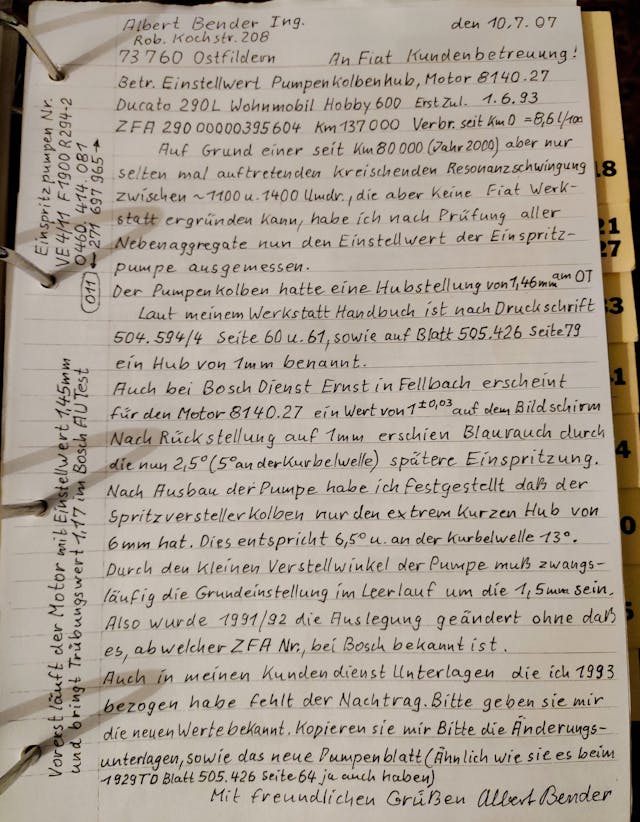 Albert Bender Ing.
den 10.7.07
Rob. Kochstr. 208
73760 Ostfildern
An Fiat Kundenbetreuung!
Betr. Einstellwert Pumpenkolbenhub, Motor 8140.27
Ducato 290L Wohnmobil Hobby 600 Erst Zul. 1.6.93
ZFA 290 00000395604 Km 137000 Verbr. seit Km 0 = 8,6 l/100
Auf Grund einer seit Km 80 000 (Jahr 2000) aber nur
selten mal auftretenden kreischenden Resonanzschwingung
zwischen ~1100 u. 1400 Umdr., die aber keine Fiat Werk-
statt ergründen kann, habe ich nach Prüfung aller
Nebenaggregate nun den Einstellwert der Einspritz-
pumpe ausgemessen.
Der Pumpenkolben hatte eine Hubstellung von 1,46mm am OT
Laut meinem Werkstatt Handbuch ist nach Druckschrift
504.594/4 Seite 60 u. 61, sowie auf Blatt 505.426 Seite 79
ein Hub von 1mm benannt.
Auch bei Bosch Dienst Ernst in Fellbach erscheint
für den Motor 8140.27 ein Wert von 1 ±0,03 auf dem Bildschirm
Nach Rückstellung auf 1mm erschien Blaurauch durch
die nun 2,5° (5° an der Kurbelwelle) spätere Einspritzung.
Nach Ausbau der Pumpe habe ich festgestellt daß der
Spritzverstellerkolben nur den extrem kurzen Hub von
6mm hat. Dies entspricht 6,5° u. an der Kurbelwelle 13°.
Durch den kleinen Verstellwinkel der Pumpe muß zwangs-
läufig die Grundeinstellung im Leerlauf um die 1,5mm sein.
Also wurde 1991/92 die Auslegung geändert ohne daß
es, ab welcher ZFA Nr., bei Bosch bekannt ist.
Auch in meinen Kundendienst Unterlagen die ich 1993
bezogen habe fehlt der Nachtrag. Bitte geben sie mir
die neuen Werte bekannt. Kopieren sie mir Bitte die Änderungs-
unterlagen, sowie das neue Pumpenblatt (Ähnlich wie sie es beim
1929 TD Blatt 505.426 Seite 64 ja auch haben)
Mit freundlichen Grüßen Albert Bender
Einspritzpumpen Nr.
VE 4/11 F 1900 R 294-2
0460 414 081
011 ← 271 697 965 →
Vorerst läuft der Motor mit Einstellwert 1,45mm
und bringt Trübungswert 1,17 im Bosch AU Test
18
21
27
33
1
4
0
5
6